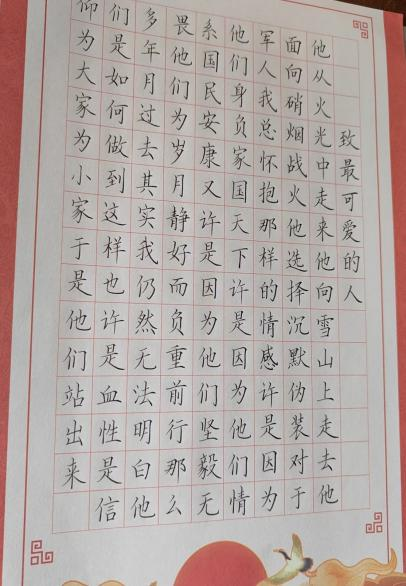 致最可爱的人
他从火光中走来他向雪山上走去他
面向硝烟战火他选择沉默伪装对于
军人我总怀抱那样的情感许是因为
他们身负家国天下许是因为他们情
系国民安康又许是因为他们坚毅无
畏他们为岁月静好而负重前行那么
多年月过去其实我仍然无法明白他
们是如何做到这样也许是血性是信
仰为大家为小家于是他们站出来